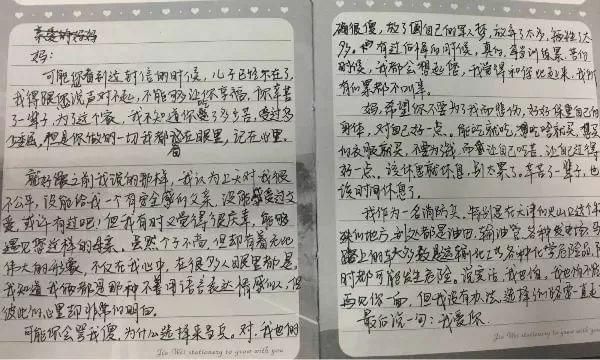 亲爱的妈妈
妈:
可能您看到这封信的时候,儿子已经不在了
我得跟您说声对不起,不能够让你享福,你辛苦
了一辈子,为了这个家,我不知道你吃了多少苦,受过多
少委屈,但是你做的一切我都看在眼里,记在心里。
就好像之前我说的那样,我认为上天对我很
不公平,没能给我一个有安全感的父亲,没能感受过父
爱或许有过吧!但我有时又觉得很庆幸,能够
遇见您这样的母亲。虽然个子不高,但却有着无比
伟大的形象,不仅在我心中,在很多人眼里都是。
我知道我俩都是那种不善用语言表达情感的人,但
彼此的心里却非常的明白。
可能你会骂我傻,为什么选择来当兵。对,我也的
确很傻,放了圆自己的军人梦,放弃了太多,牺牲了太
多。也有过后悔的时候,真的,每当训练累、苦的
时候,我都会想起您,我觉得和你比起来,我所
有的累都不叫事。
妈,希望你不要为了我而悲伤,好好保重自己的
身体,对自己好一点。能吃就吃,想吃啥就买,想买
的衣服就买,不要为钱而让自己吃苦,让自己过得
好一点。该休息就休息,别太累了,辛苦了一辈子,也
该时间休息了。
我作为一名消防兵,特别是在天津的
殊的地方,到处都是油田,输油管,各种
路上的车大多数是运输化工及各种化学危险品,随
时都可能发生危险。说实话,我也怕,我也怕不能
再见你一面,但我没有办法,选择的路需一直走
最后说一句:我爱你
Jia Wei stationery to grow with you
Jia Wei stationery to grow with you